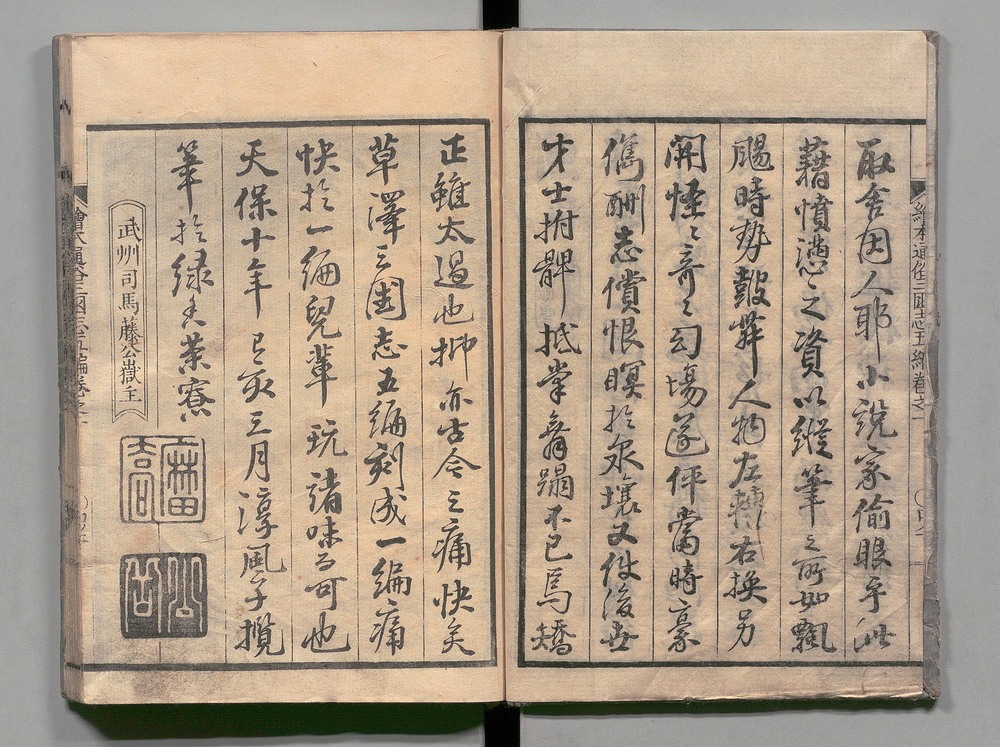 取舍因人耶小説家偷眼乎此
藉憤懣之資以縱筆之所如飄
賜時勢鼓舞人物左轉右換另
開怪々奇々勾場遂俾當時豪
儁酬志償恨瞑於泉壤又使後世
才士拊髀抵掌舞蹋不已焉矯
正雖太過也抑亦古今之痛快矣
草澤三國志五編刻成一編痛
快於一編兒輩玩諸味了可也
天保十年己亥三月淳風子攬
筆於緑天業寮
武州司馬藤公嶽主
繪本通俗三國志五編卷之一
繪本通俗三國志五編卷之一